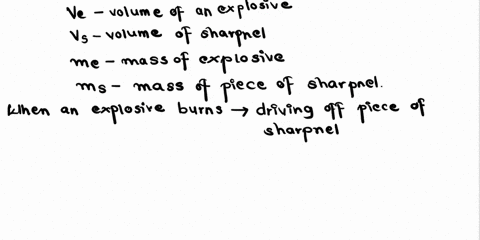 Ve - volume of an explosive
Vs - volume of sharpnel
me - mass of explosive
ms - mass of piece of sharpnel.
When an explosive burns → driving off piece of
sharpnel